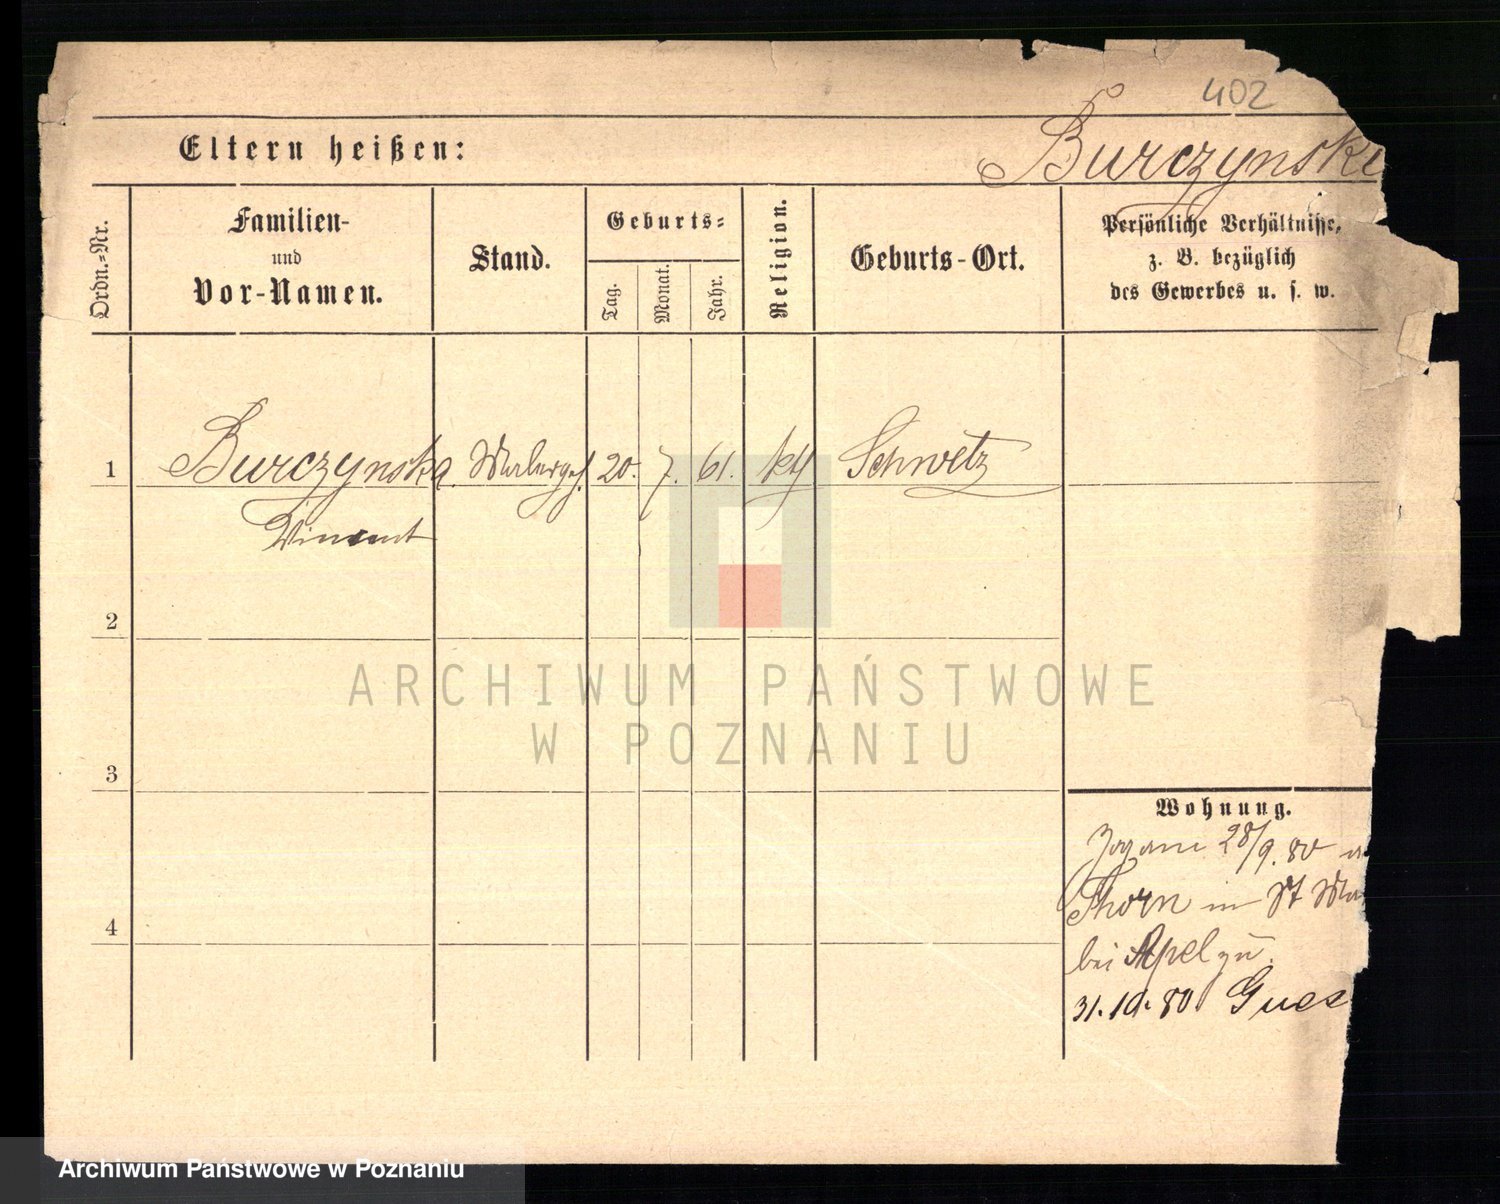 402
Eltern heißen:
Burczynski
Ordn.-Nr.
Familien-
und
Vor-Namen.
Stand.
Geburts-
Tag.
Monat.
Jahr.
Religion.
Geburts-Ort.
Persönliche Verhältnisse,
z. B. bezüglich
des Gewerbes u. s. w.
1
Burczynska. Malergeh. 20. 7. 61. kth Schwetz
Vincent
2
3
4
Wohnung.
28/9. 80
Thorn in St Ma
bei Apel zu.
31.10.80
ARCHIWUM PAŃSTWOWE
W POZNANIU
Archiwum Państwowe w Poznaniu